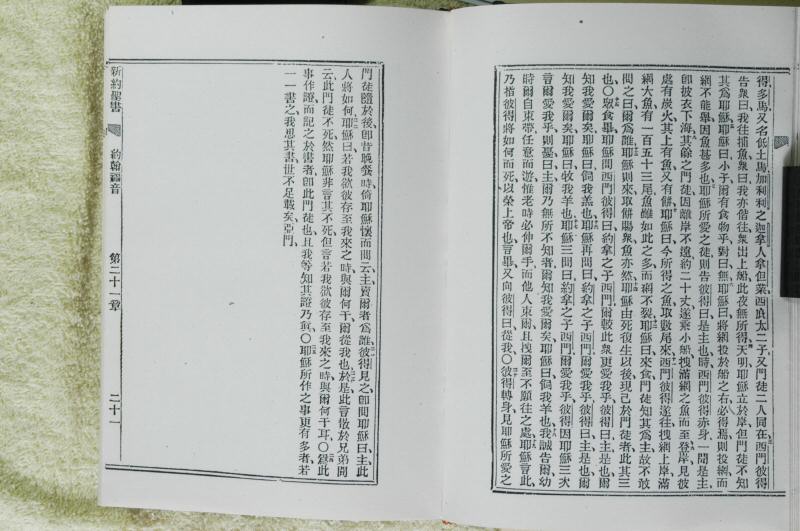 得多馬又名低土馬加利利之迦拿人拿但業西庇太二子又門徒二人同在西門彼得
告衆曰我往捕魚衆曰我亦偕往衆出上船此夜無所得天明耶穌立於岸但門徒不知
其爲耶穌耶穌曰小子爾有食物乎對曰無耶穌曰將網投於船之右必得焉則投網而
網不能舉因魚甚多也耶穌所愛之徒則告彼得曰是主也時西門彼得赤身一聞是主
卽披衣下海其餘之門徒因離岸不遠約二十丈遂乘小船拽滿網之魚而至登岸見彼
處有炭火其上有魚又有餅耶穌曰今所得之魚取數尾來西門彼得遂往拽網上岸滿
網大魚有一百五十三尾魚雖如此之多而網不裂耶穌曰來食門徒知其爲主故不敢
問之曰爾爲誰耶穌則來取餅賜衆魚亦然耶穌由死復生以後現己於門徒者此其三
也〇衆食畢耶穌問西門彼得曰約拿之子西門爾較此衆更愛我乎彼得曰主是也爾
知我愛爾矣耶穌曰飼我羔也耶穌再問曰約拿之子西門爾愛我乎彼得曰主是也爾
知我愛爾矣耶穌曰牧我羊也耶穌三問曰約拿之子西門爾愛我乎彼得因耶穌三次
言爾愛我乎則憂曰主爾乃無所不知者爾知我愛爾矣耶穌曰飼我羊也我誠告爾幼
時爾自束帶任意而遊惟老時必伸爾手而他人束爾且拽爾至不願往之處耶穌言此
乃指彼得將如何而死以榮上帝也言畢又向彼得曰從我〇彼得轉身見耶穌所愛之
門徒隨於後卽昔晚餐時倚耶穌懷而問云主賣爾者爲誰彼得見之卽問耶穌曰主此
人將如何耶穌曰若我欲彼存至我來之時與爾何干爾從我也於是此言散於兄弟間
云此門徒不死然耶穌非言其不死但言若我欲彼存至我來之時與爾何干耳〇爲此
事作證而記之於書者卽此門徒也且我等知其證乃眞〇耶穌所作之事更有多者若
一一書之我思其書世不足載矣亞門
新約聖書 約翰福音 第二十一章 二十一